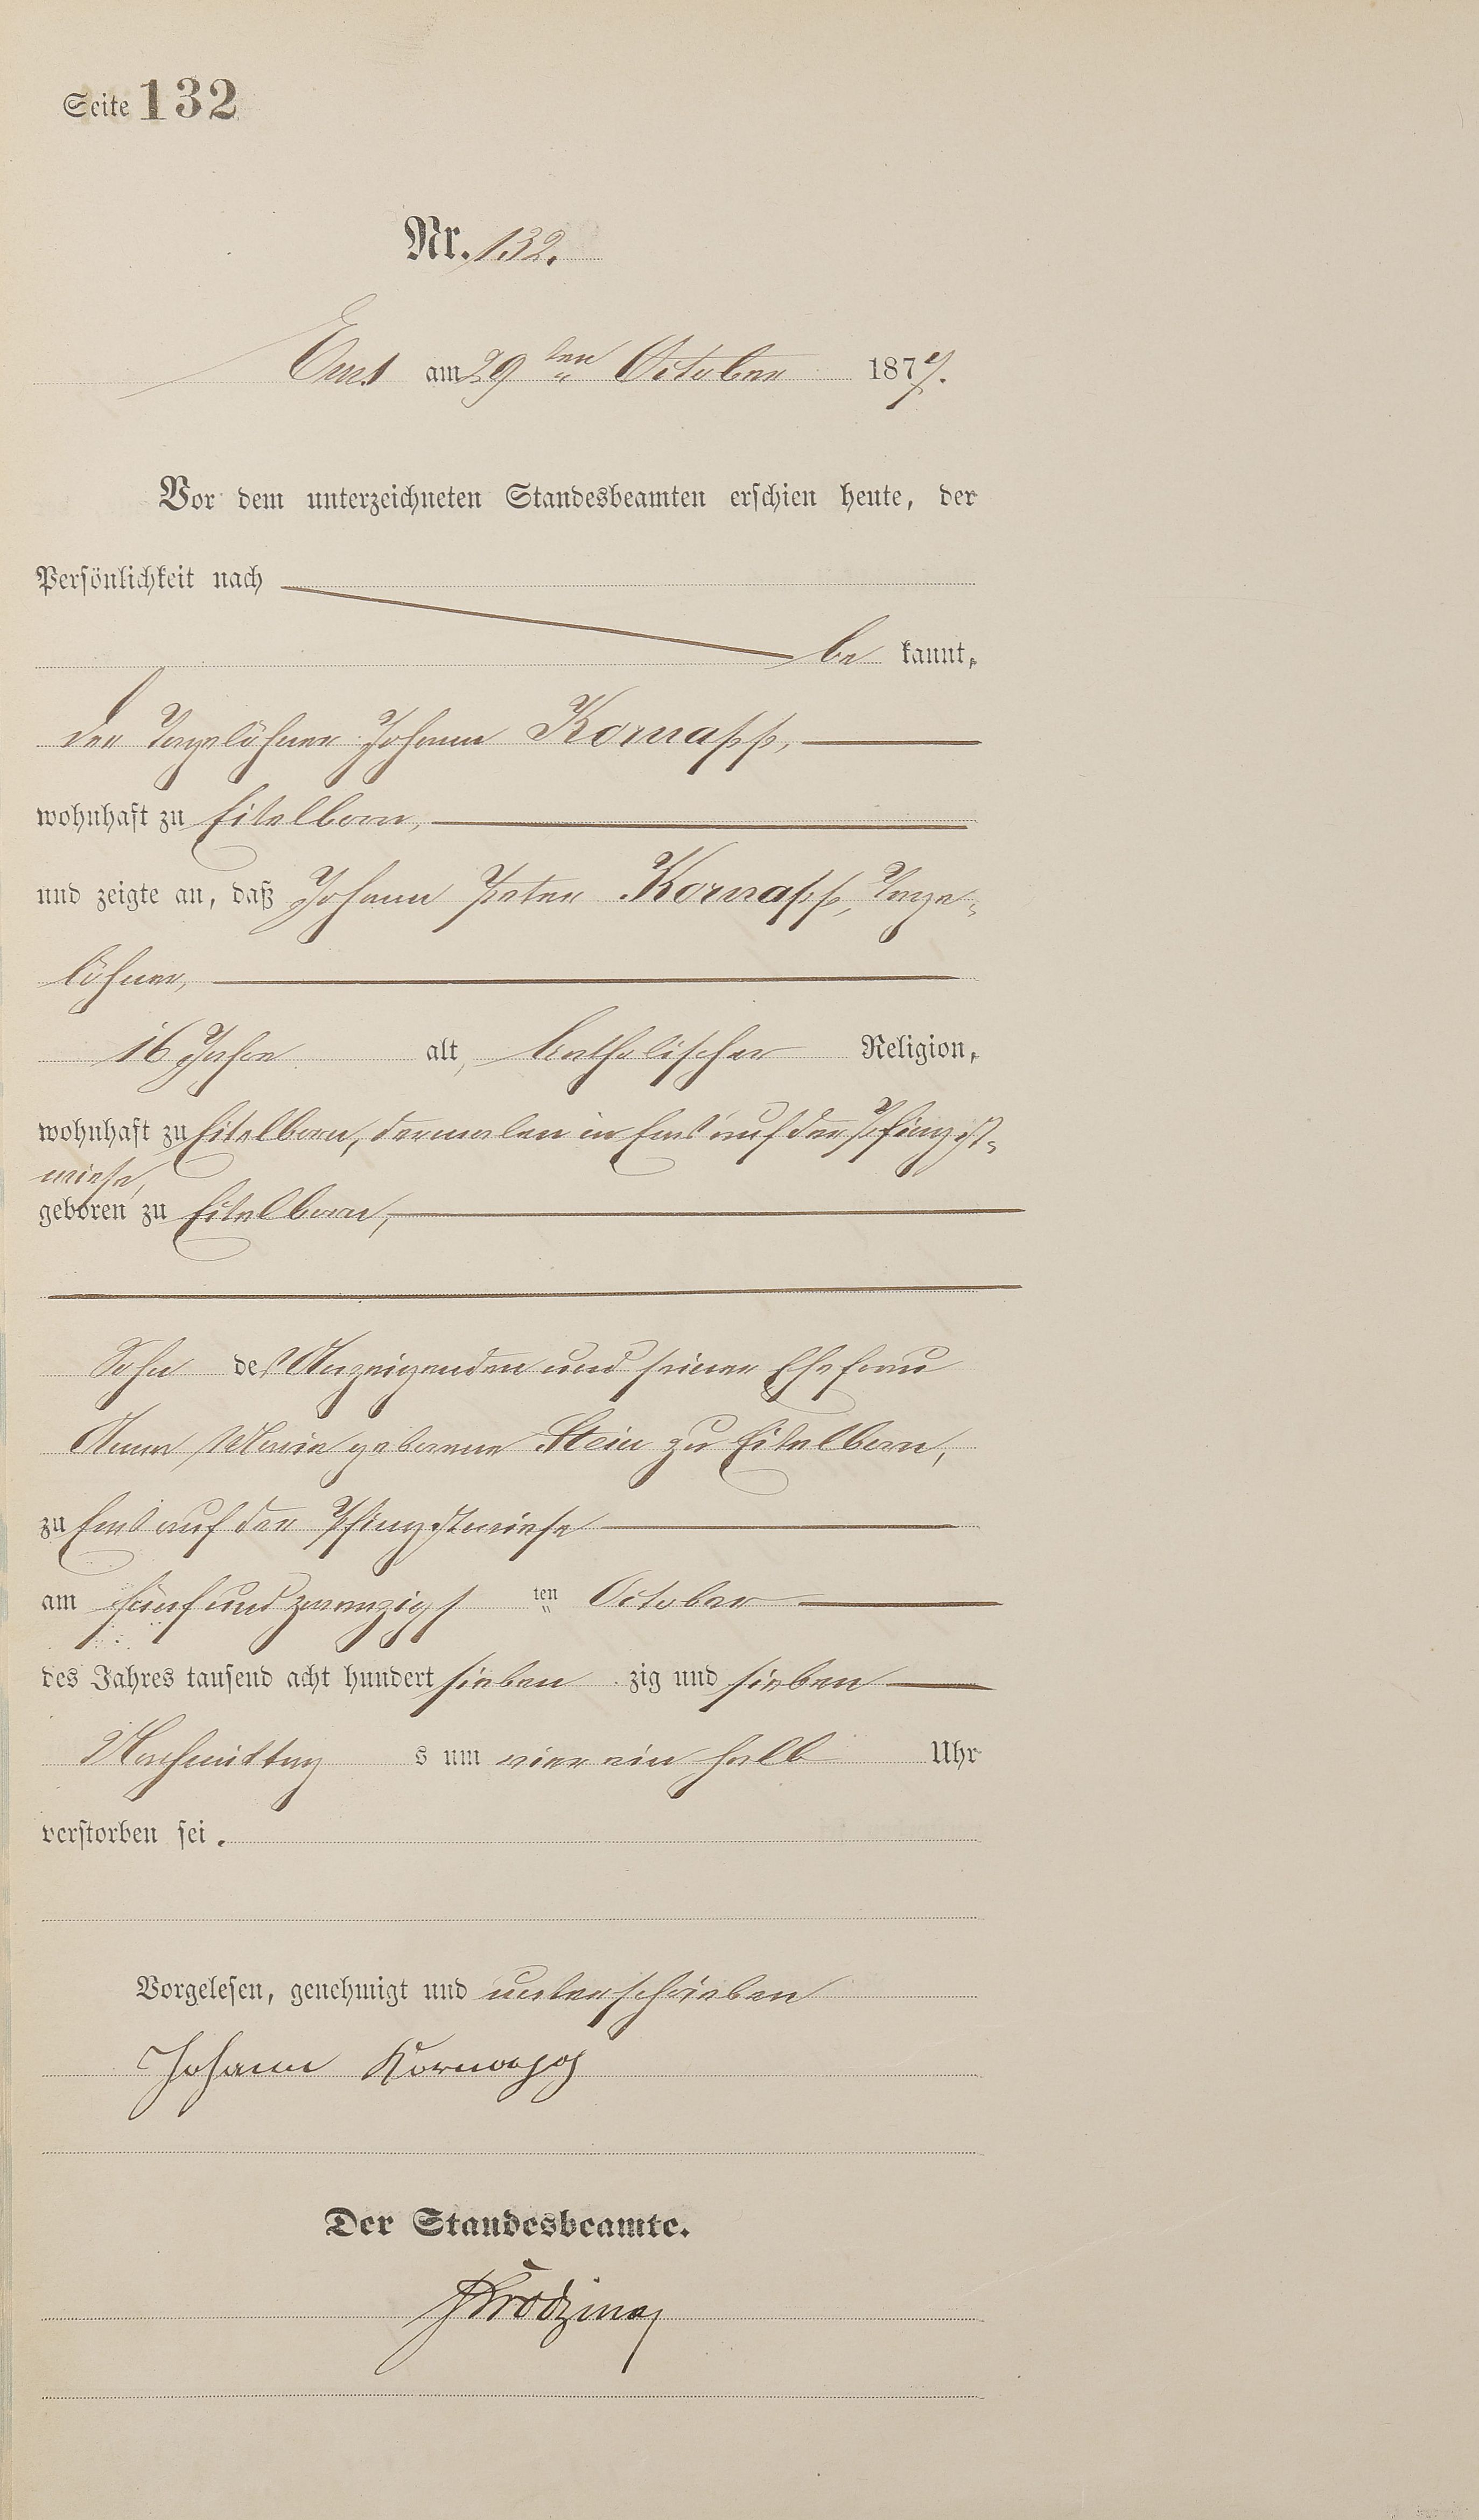 Seite 132
Nr. 132.
Ems am 29 ten October 1877.
Vor dem unterzeichneten Standesbeamten erschien heute, der
Persönlichkeit nach
be kannt,
der Tagelöhner Johann Kornapp,
wohnhaft zu Eitelborn,
und zeigte an, daß Johann Peter Kornapp, Tage-
löhner,
16 Jahre alt, katholischer Religion,
wohnhaft zu Eitelborn, dermalen in Ems auf der Pfingst-
wiese,
geboren zu Eitelborn,
Sohn des Anzeigenden und seiner Ehefrau
Anna Maria geborene Stein zu Eitelborn,
zu Ems auf der Pfingstwiese
am fünf und zwanzigs ten October
des Jahres tausend acht hundert sieben zig und sieben
Nachmittag s um vier ein halb Uhr
verstorben sei.
Vorgelesen, genehmigt und unterschrieben
Johann Kornapp
Der Standesbeamte.